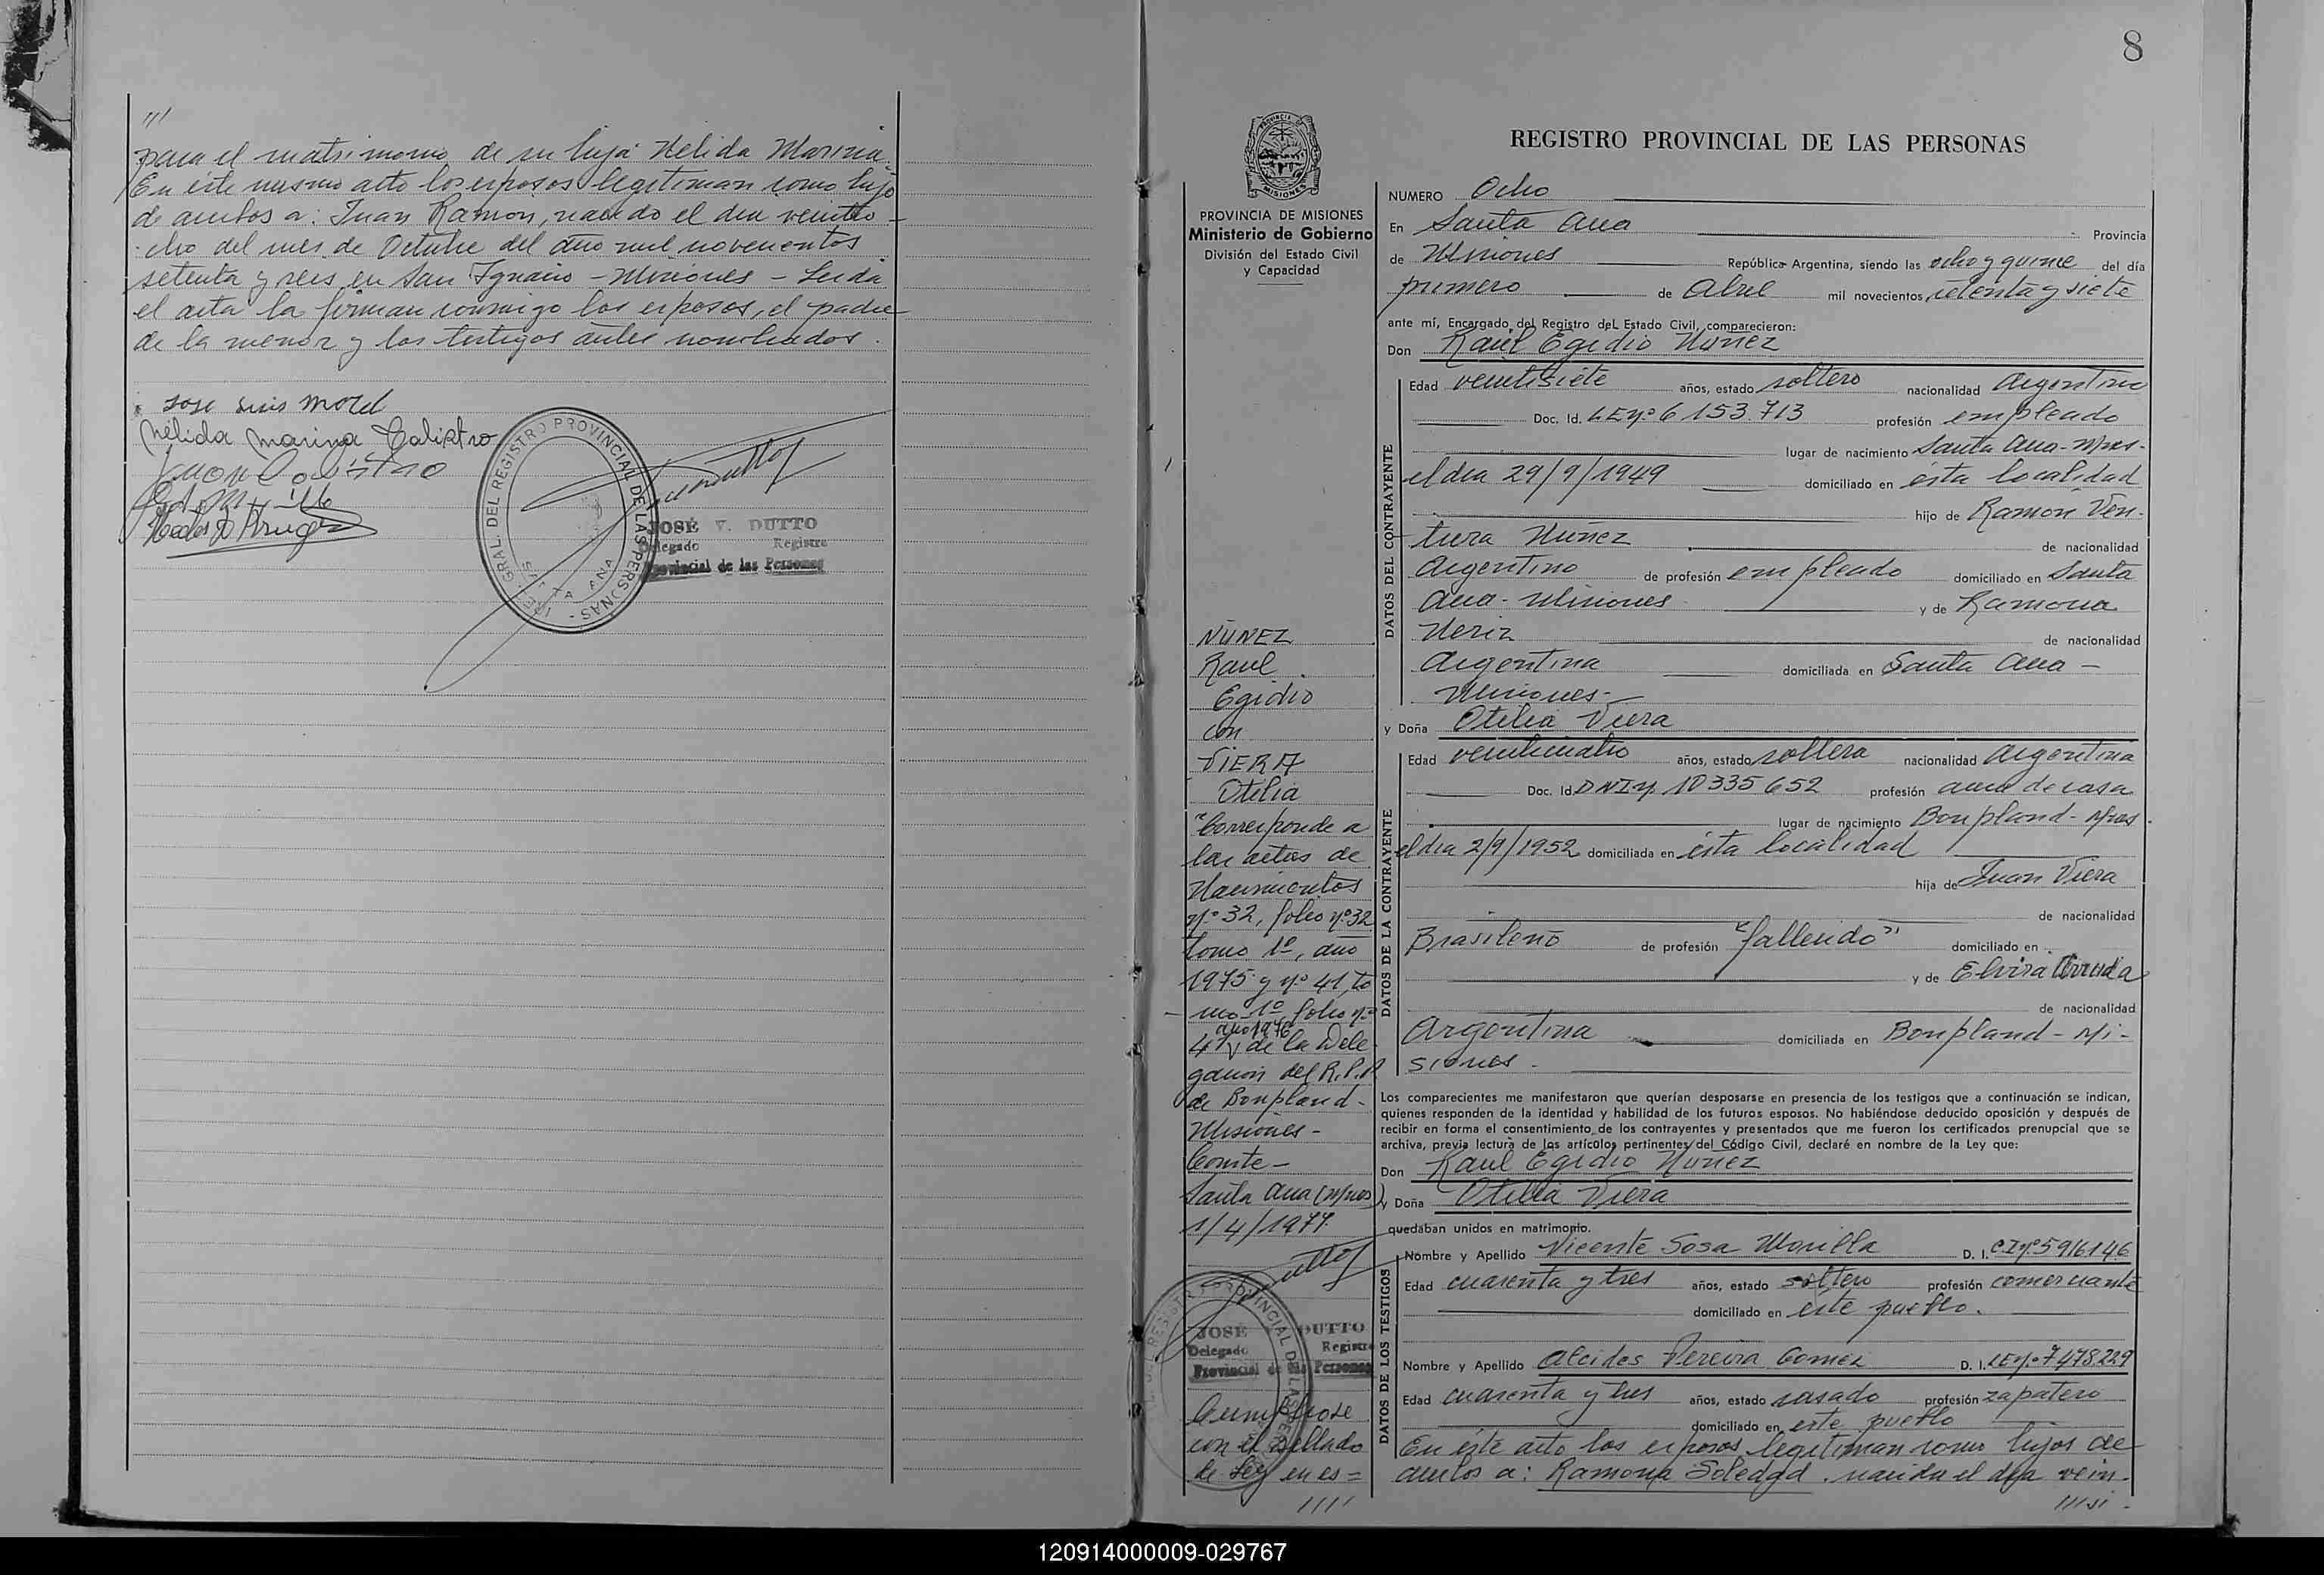 ///
para el matrimonio de su hija Nelida Marina.
En éste mismo acto los esposos legitiman como hijo
de ambos a: Juan Ramon, nacido el dia veintio-
cho del mes de Octubre del año mil novecientos
setenta y seis en San Ignacio - Misiones - Leida
el acta la firman conmigo los esposos, el padre
de la menor y los testigos antes nombrados.
Jose Luis Morel
Nélida Marina Calistro
REGISTRO PROVINCIAL DE LAS PERSONAS
SANTA ANA
JOSÉ V. DUTTO
Delegado Registro
Provincial de las Personas
8
PROVINCIA DE MISIONES
Ministerio de Gobierno
División del Estado Civil
y Capacidad
NUÑEZ
Raul
Egidio
con
VIERA
Otilia
"Corresponde a
las actas de
Nacimientos
Nº 32, folio nº 32
tomo 1º, año
1975 y nº 41, to
mo 1º folio nº
año 1976
41 de la Dele
gación del R.P.P
de Bonpland-
Misiones-
Conste-
Santa Ana (Mnes)
1/4/1977.
JOSÉ V. DUTTO
Delegado Registro
Provincial de las Personas
Cumplióse
con el Sellado
de Ley en es=
////
REGISTRO PROVINCIAL DE LAS PERSONAS
NUMERO Ocho
En Santa Ana Provincia
de Misiones República Argentina, siendo las ocho y quince del día
primero de Abril mil novecientos setenta y siete
ante mí, Encargado del Registro del Estado Civil, comparecieron:
Don Raúl Egidio Nuñez
DATOS DEL CONTRAYENTE
Edad veintisiete años, estado soltero nacionalidad Argentino
Doc. Id. LE nº 6153.713 profesión empleado
lugar de nacimiento Santa Ana-Mnes-
el dia 29/9/1949 domiciliado en ésta localidad
hijo de Ramón Ven-
tura Nuñez de nacionalidad
Argentino de profesión empleado domiciliado en Santa
Ana - Misiones y de Ramona
Neriz de nacionalidad
Argentina domiciliada en Santa Ana -
Misiones-
y Doña Otilia Viera
DATOS DE LA CONTRAYENTE
Edad veinticuatro años, estado soltera nacionalidad Argentina
Doc. Id. DNI nº 10335652 profesión ama de casa
lugar de nacimiento Bonpland - Mnes.
el dia 2/9/1952 domiciliada en ésta localidad
hija de Juan Viera
de nacionalidad
Brasileño de profesión "fallecido" domiciliado en
y de Elvira Arruda
de nacionalidad
Argentina domiciliada en Bonpland - Mi-
siones.
Los comparecientes me manifestaron que querían desposarse en presencia de los testigos que a continuación se indican,
quienes responden de la identidad y habilidad de los futuros esposos. No habiéndose deducido oposición y después de
recibir en forma el consentimiento de los contrayentes y presentados que me fueron los certificados prenupcial que se
archiva, previa lectura de los artículos pertinentes del Código Civil, declaré en nombre de la Ley que:
Don Raul Egidio Nuñez
y Doña Otilia Viera
quedaban unidos en matrimonio.
DATOS DE LOS TESTIGOS
Nombre y Apellido Vicente Sosa Morilla D. I. CI nº 5916146
Edad cuarenta y tres años, estado soltero profesión comerciante
domiciliado en este pueblo.
Nombre y Apellido Alcides Pereira Gomez D. I. LE nº 7478229
Edad cuarenta y tres años, estado casado profesión zapatero
domiciliado en este pueblo
En éste acto los esposos legitiman como hijos de
ambos a: Ramona Soledad, nacida el dia vein-
120914000009-029767